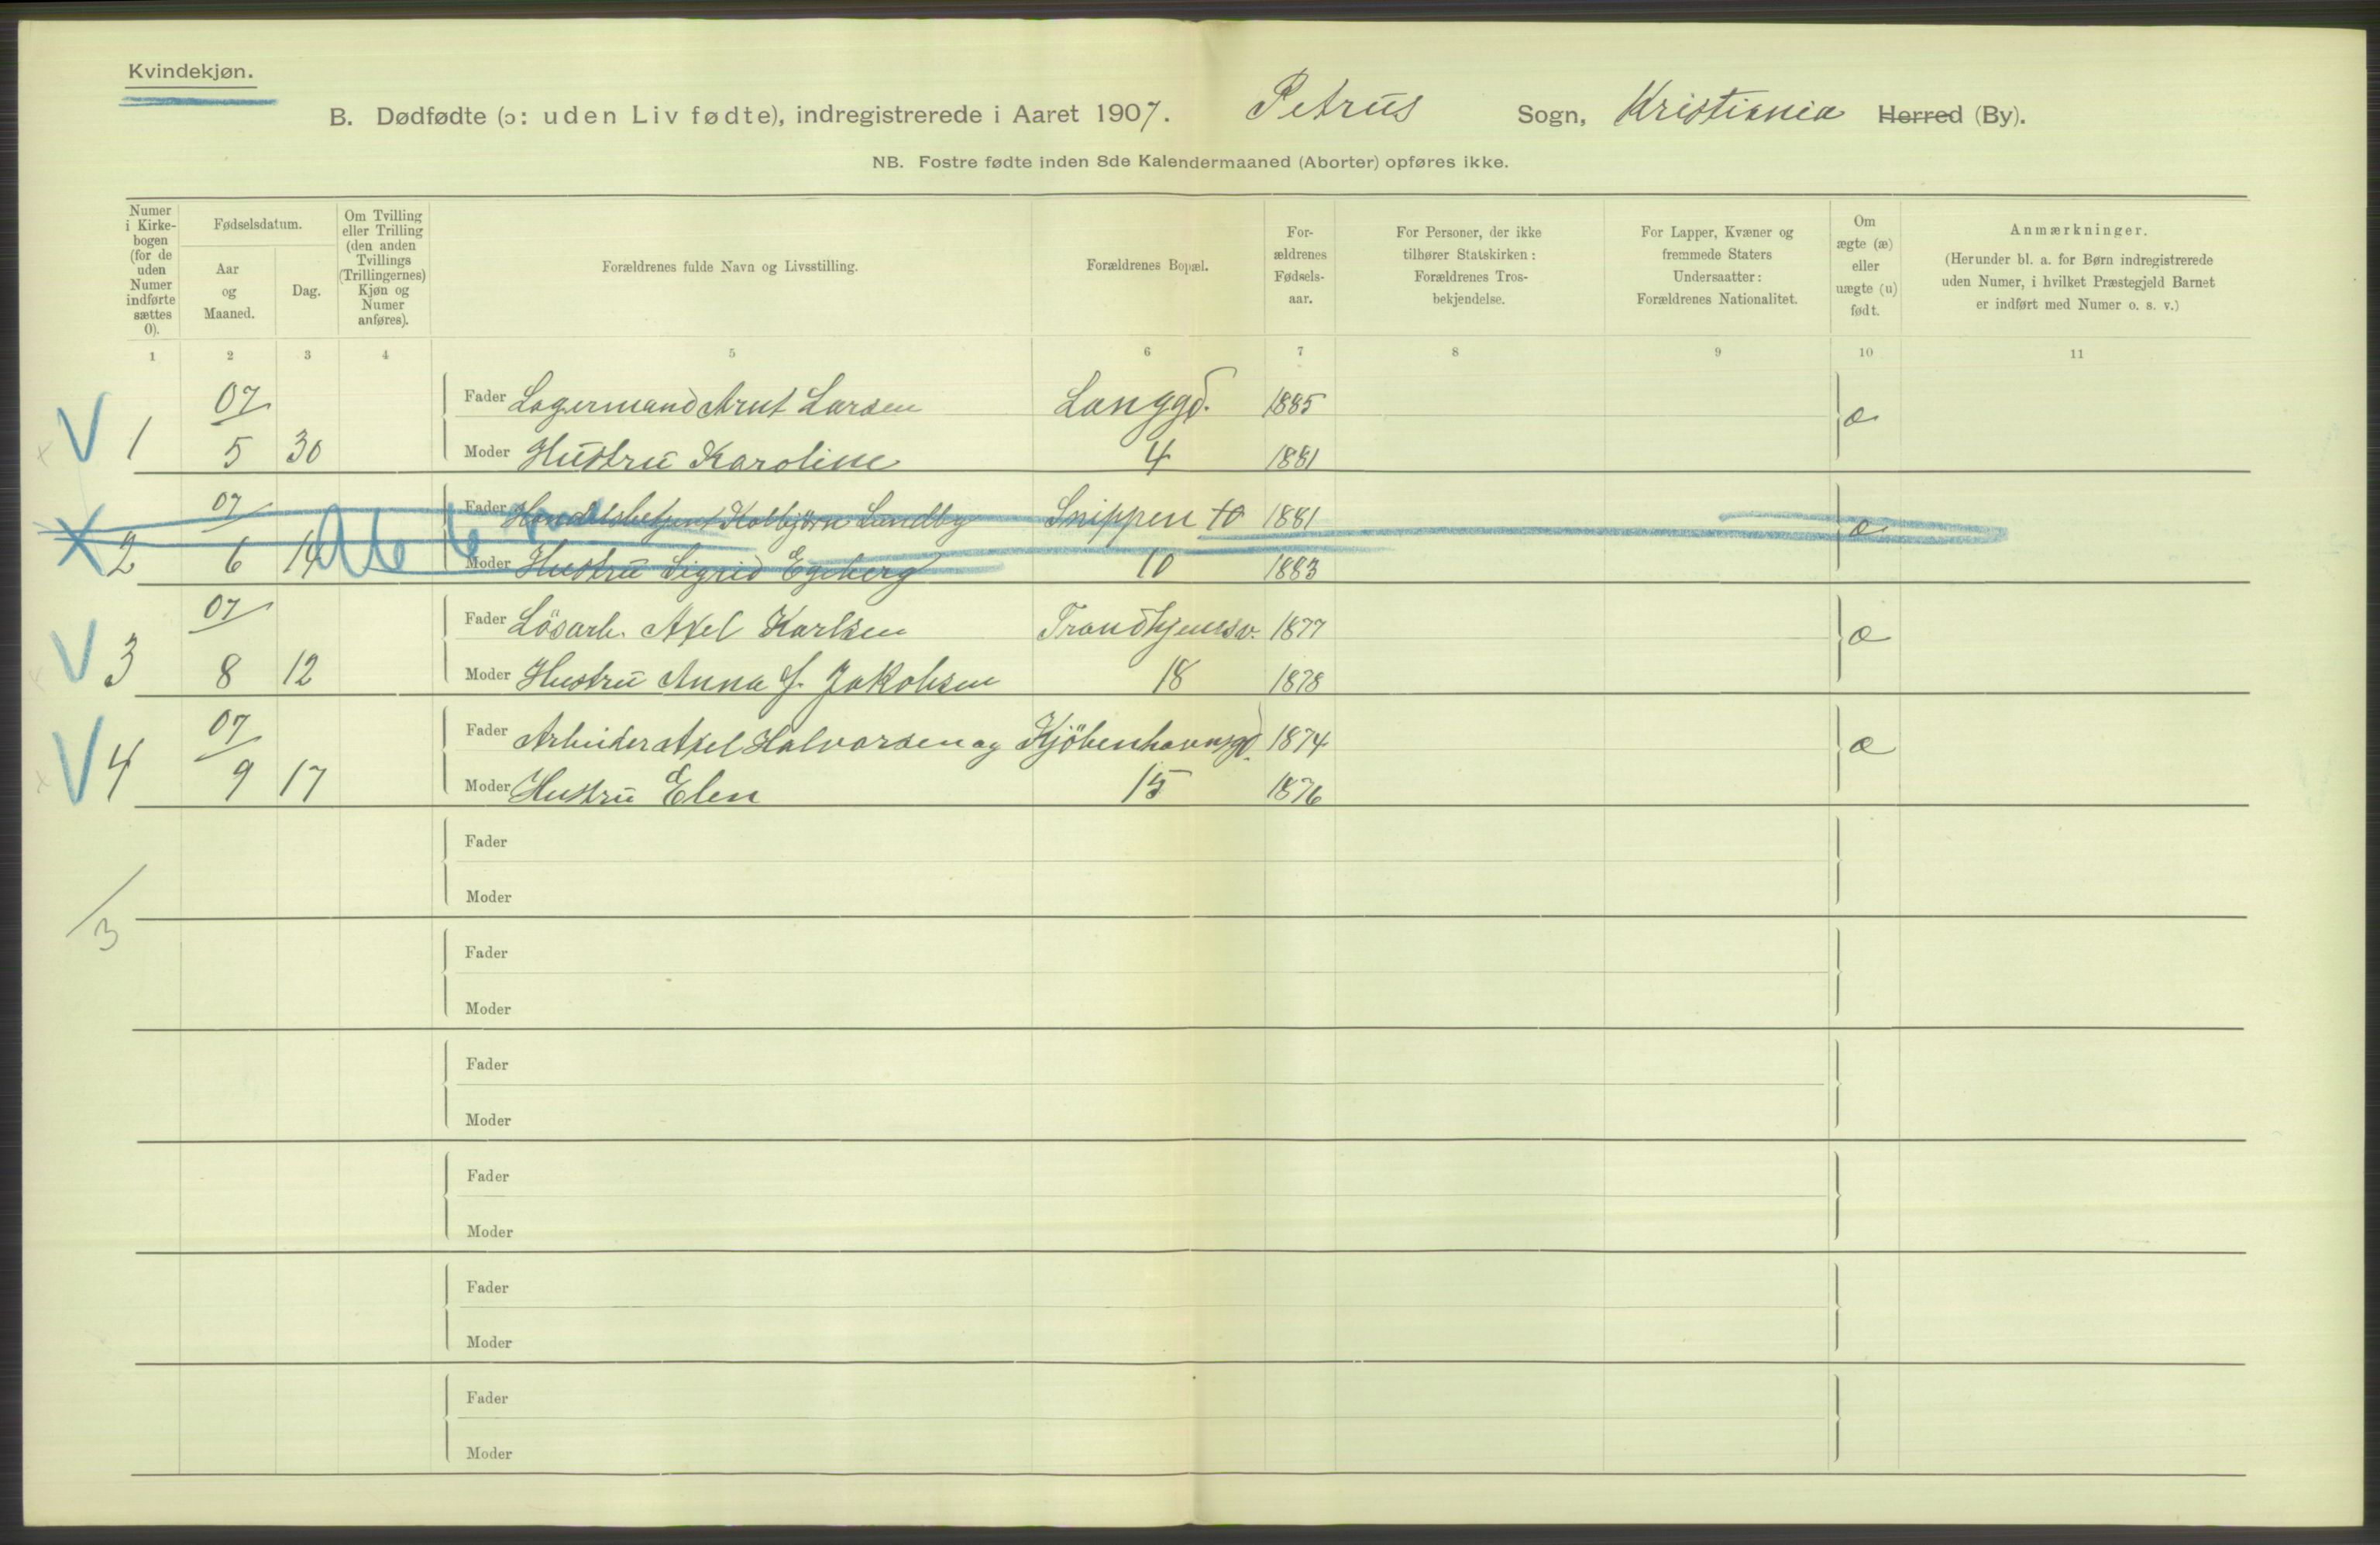 Kvindekjøn.
B. Dødfødte (ɔ: uden Liv fødte), indregistrerede i Aaret 1907. Petrus Sogn, Kristiania Herred (By).
NB. Fostre fødte inden 8de Kalendermaaned (Aborter) opføres ikke.
Numer i Kirkebogen (for de uden Numer indførte sættes 0).
Fødselsdatum.
Aar og Maaned.
Dag.
Om Tvilling eller Trilling (den anden Tvillings (Trillingernes) Kjøn og Numer anføres).
Forældrenes fulde Navn og Livsstilling.
Forældrenes Bopæl.
Forældrenes Fødselsaar.
For Personer, der ikke tilhører Statskirken: Forældrenes Trosbekjendelse.
For Lapper, Kvæner og fremmede Staters Undersaatter: Forældrenes Nationalitet.
Om ægte (æ) eller uægte (u) født.
Anmærkninger.
(Herunder bl. a. for Børn indregistrerede uden Numer, i hvilket Præstegjeld Barnet er indført med Numer o. s. v.)
1 2 3 4 5 6 7 8 9 10 11
07 Fader Lagermand Arnt Larsen Langgd. 1885 æ
V 1 5 30 Moder Hustru Karoline 4 1881
07 Fader Handelsbetjent Kolbjörn Lundby Snippen 10 1881 æ
X 2 6 14 Moder Hustru Sigrid Egeberg 10 1883
07 Fader Lösarb. Axel Karlsen Trondhjemsv. 1877 æ
V 3 8 12 Moder Hustru Anna f. Jakobsen 18 1878
07 Fader Arbeider Axel Halvorsen og Kjöbenhavnsgd. 1874 æ
V 4 9 17 Moder Hustru Elen 15 1876
Fader
Moder
3
Fader
Moder
Fader
Moder
Fader
Moder
Fader
Moder
Fader
Moder